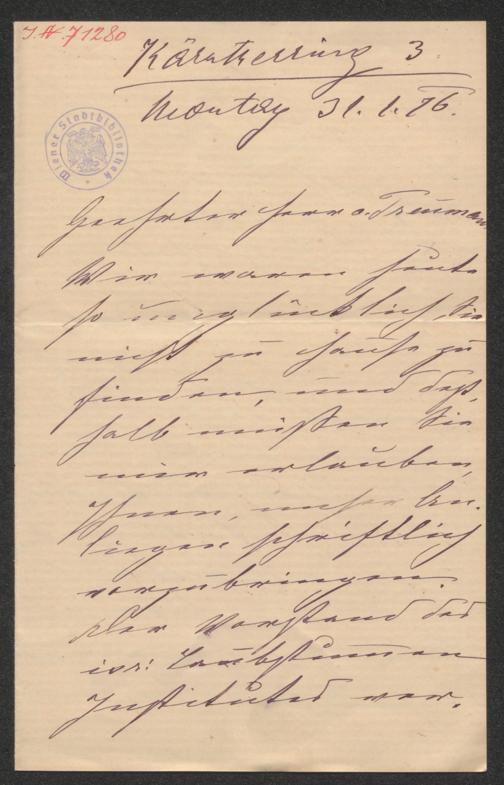 J.N. 71280
Kärntnerring 3.
Montag 31.1.76.
Wiener Stadtbibliothek
Geehrter Herr v. Treuman
Wir waren heute
so unglücklich, Sie
nicht zu Hause zu
finden, und deß¸
halb müssen Sie
mir erlauben,
Ihnen, unser An¸
liegen schriftlich
vorzubringen.
Der Vorstand des
isr: Taubstummen
Institutes ver¸